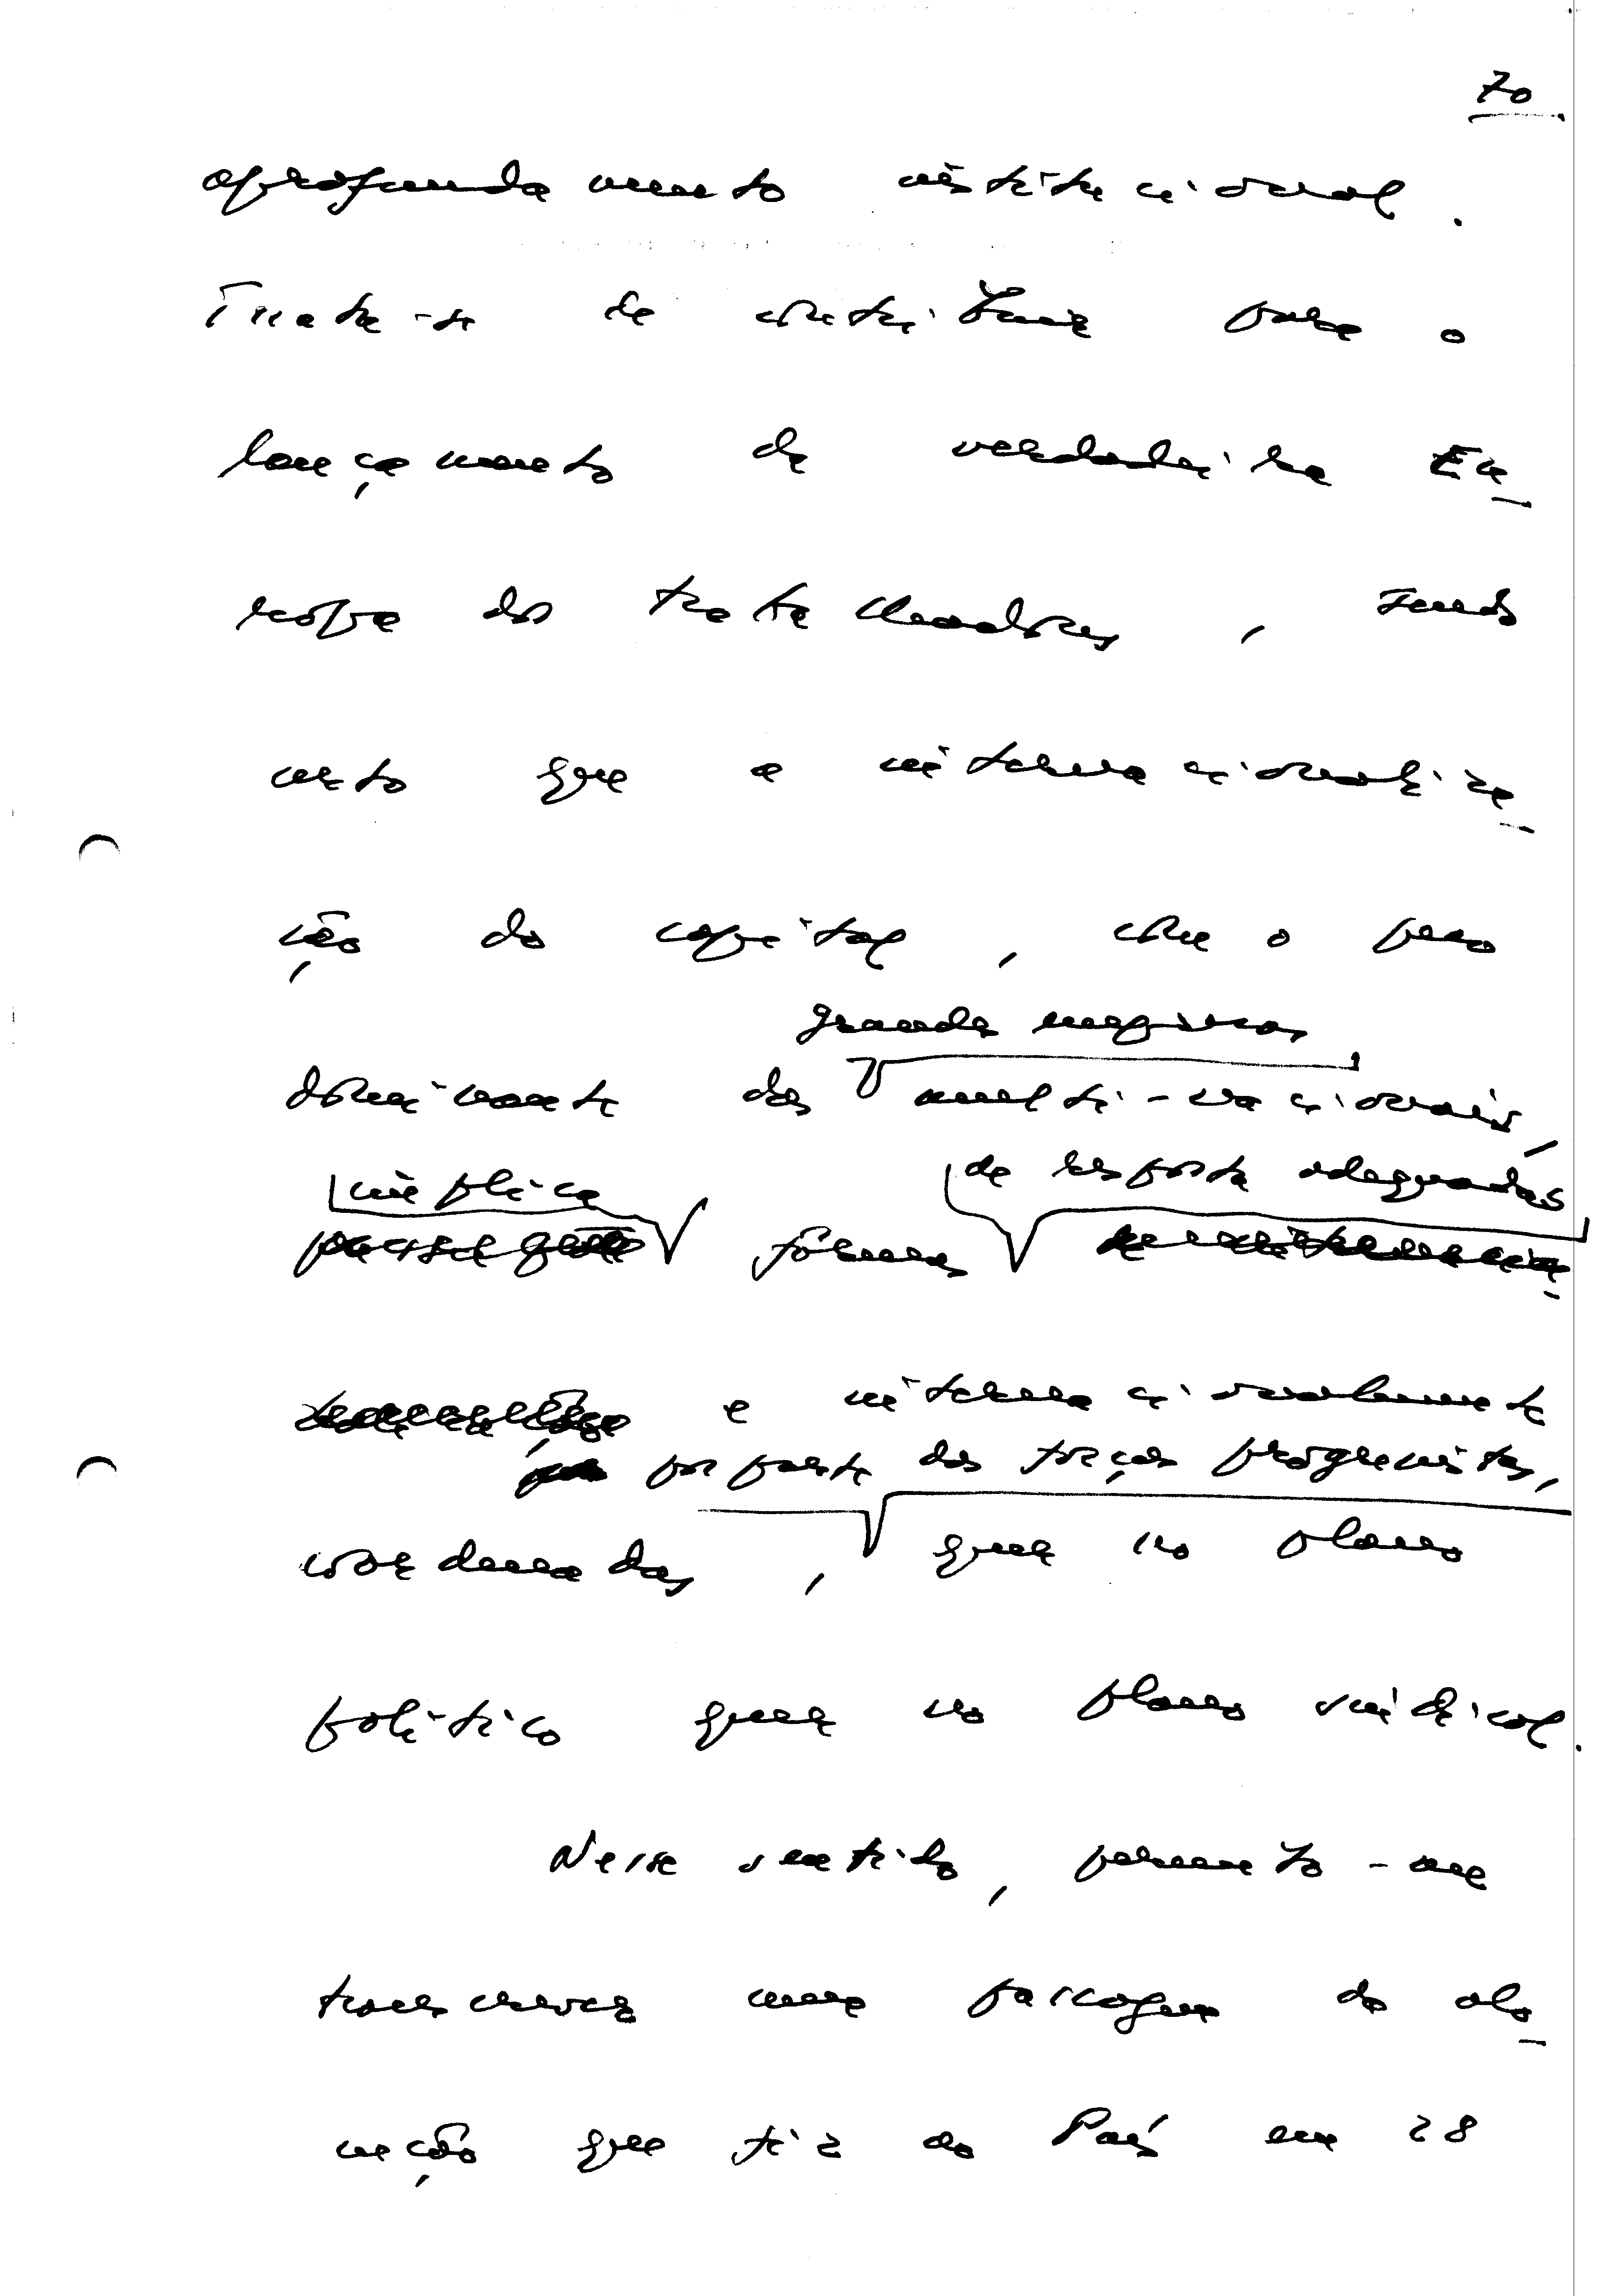 70
aprofundamento institucional.
Trata-se de contribuir para o
lançamento da verdadeira Eu-
ropa dos trabalhadores, sendo
certo que a internacionaliza-
ção do capital, com o peso
grandes empresas
dominante das multi-nacionais,
implica
de resposta adequadas
formas
e internacionalmente
por parte das forças progressistas,
coordenadas, quer no plano
político quer no plano sindical.
Nesse sentido, permito-me
transcrever uma passagem da alo-
cução que fiz ao País em 28